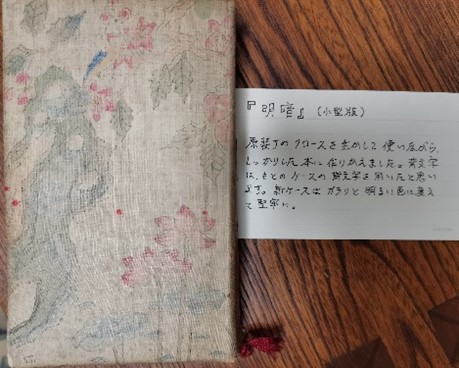 『明暗』（小型版）
原装丁のクロースを生かして使いながら、
しっかりした本に作りかえました。背文字
は、もとのケースの背文字を用いたと思い
ます。新ケースはガラリと明るい色に変え
て堅牢に。